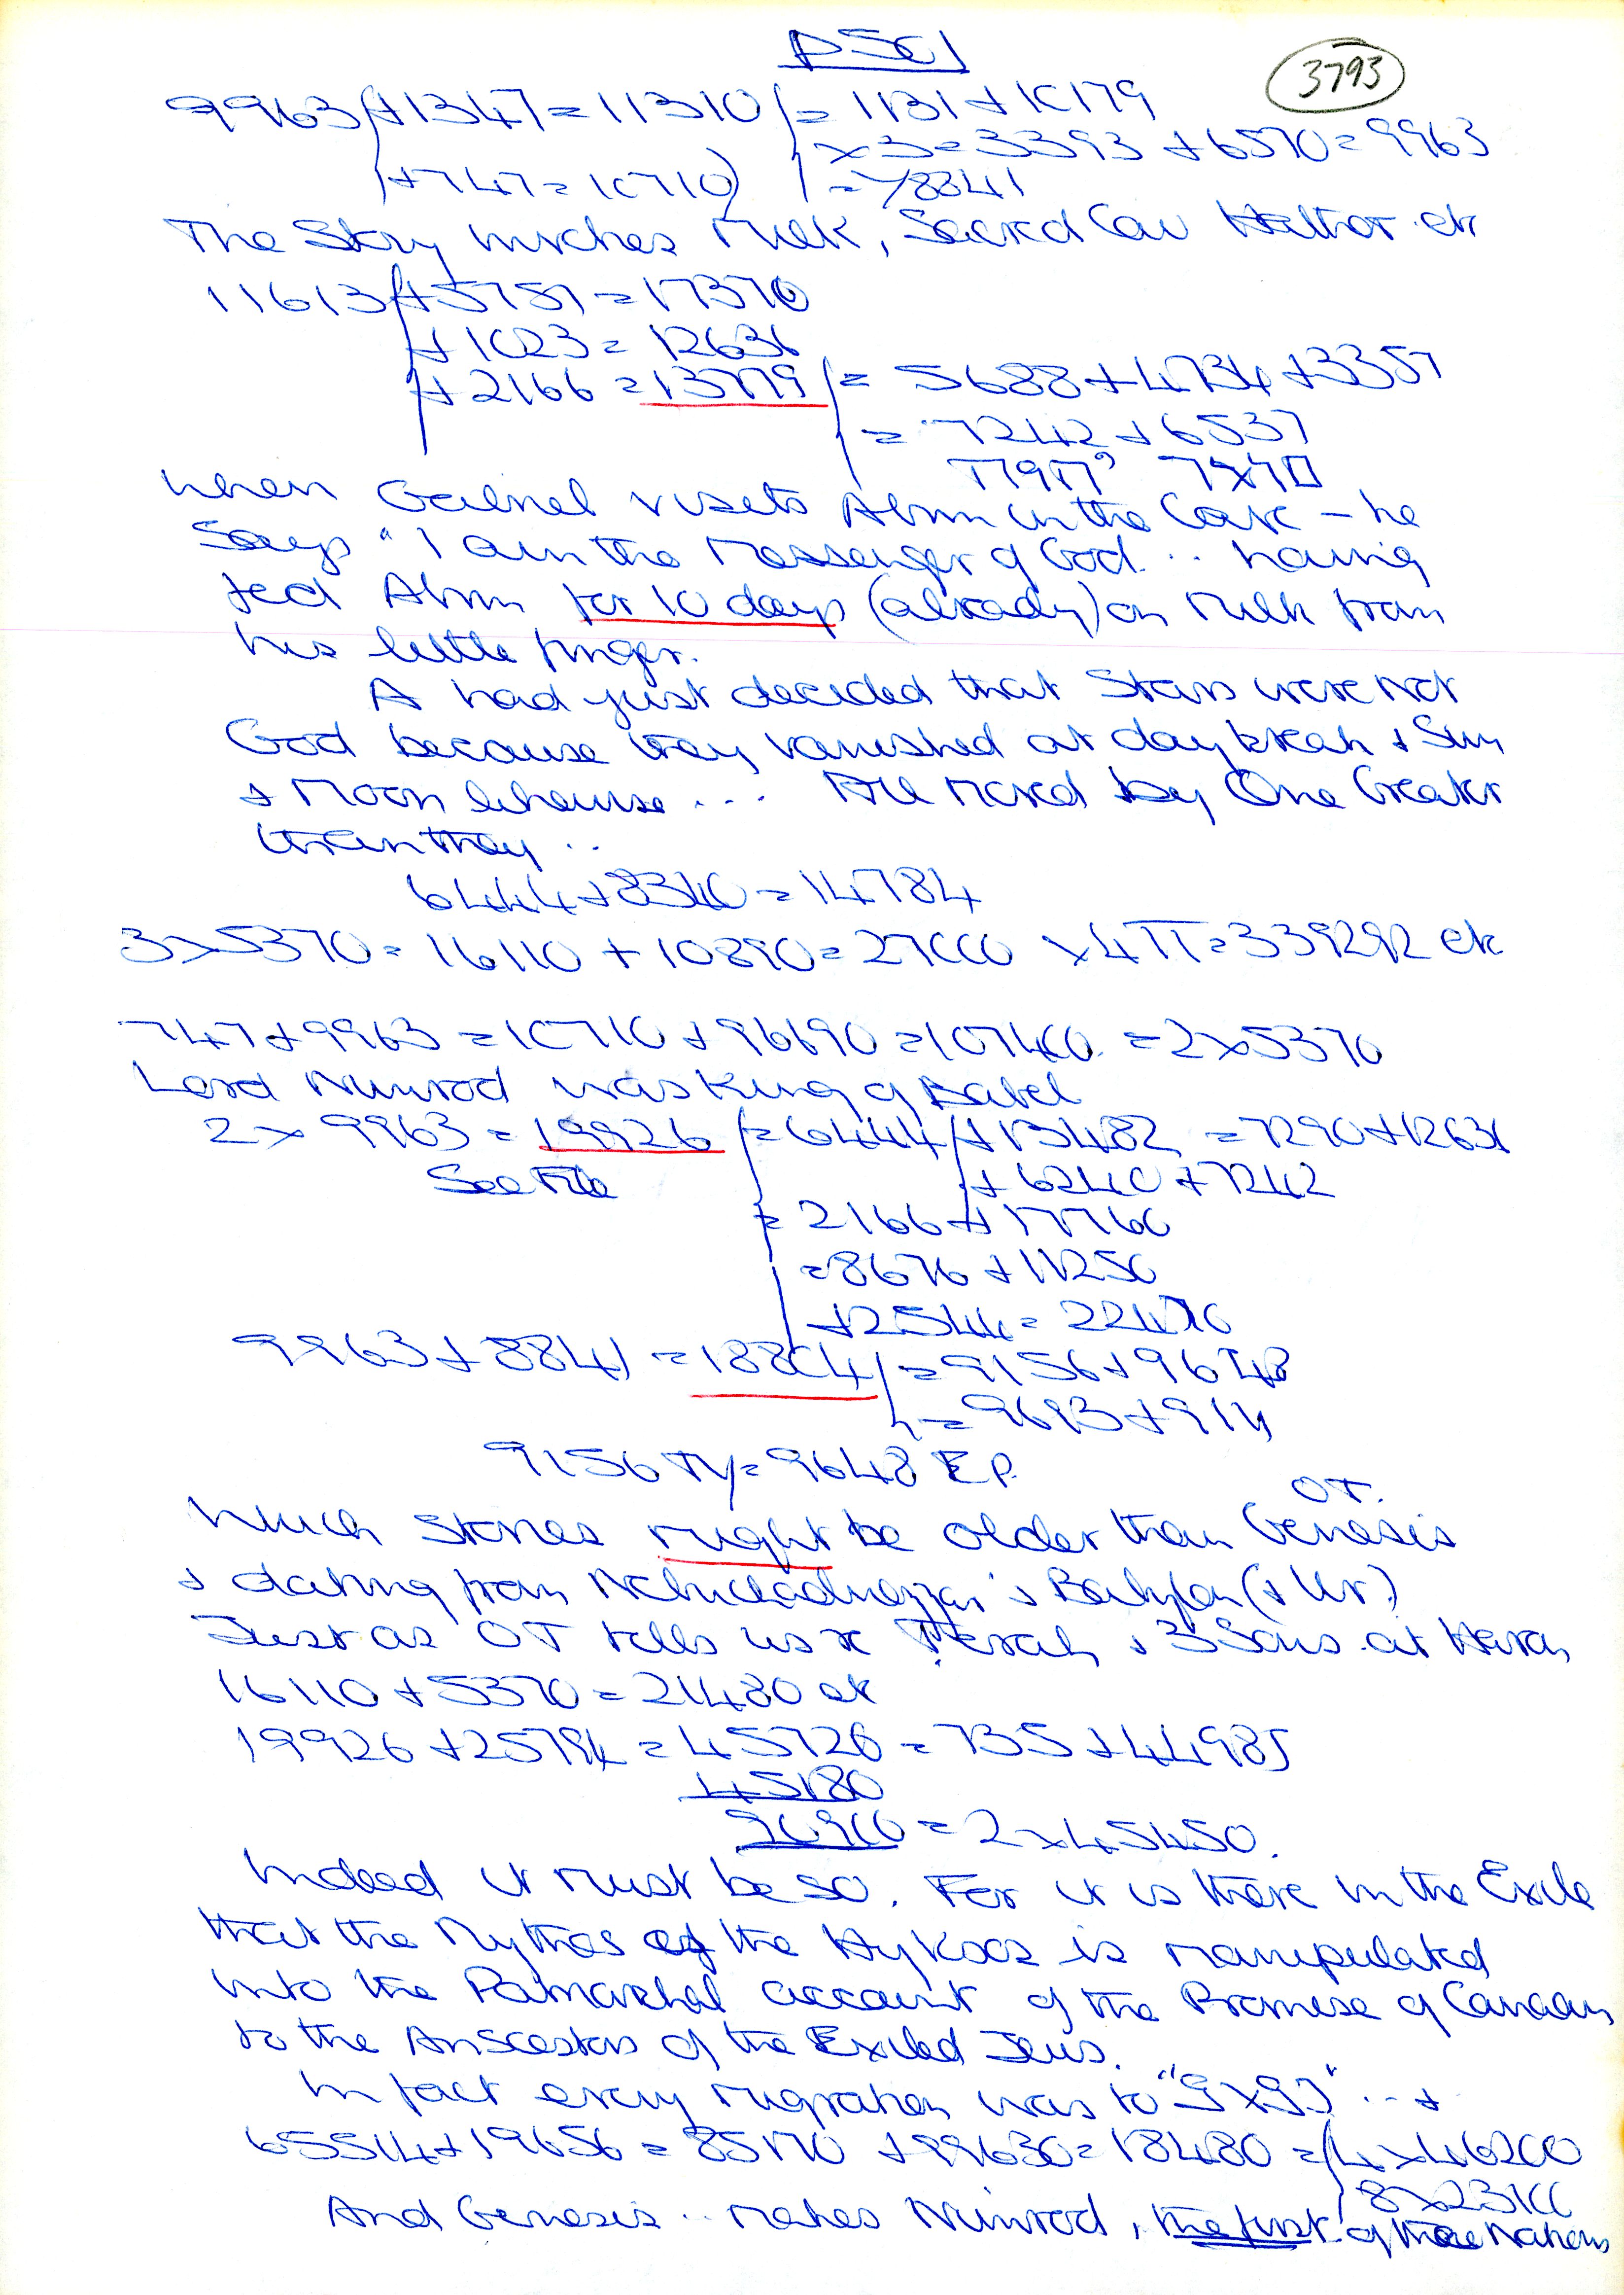 3793
9963 + 1347 = 11310 = 1131 + 10179
x 3 = 3393 + 6570 = 9963
+ 747 = 10710) = 8841
The Story Milk, Sacred Cow Hathor etc
11613 + 5757 = 17370
+ 1023 = 12636
+ 2166 = 13779 = 5688 + 4734 + 3357
= 7242 + 6537
when Gabriel visits Abrm in the Cave - he
Says "I am the Messenger of God... having
fed Abrm for 10 days (already) on Milk from
his little finger.
A had just decided that Stars were not
God because they vanished at daybreak + Sun
+ Moon likewise ... All Moved by One Greater
than they ..
6444 + 8340 = 14784
3 x 5370 = 16110 + 10890 = 27000 x 4π = 339292 etc
747 + 9963 = 10710 + 96690 = 107400 = 2 x 5370
Lord Nimrod was King of Babel
2 x 9963 = 19926 = 6444 + 13482 = 7290 + 12636
See + 6240 + 7242
= 2166 + 17760
= 8676 + 11250
+ 2544 = 22470
9963 + 8841 = 18804 = 9156 + 9648
= 9693 + 9111
9156 = 9648 E.P.
OT.
Which stories might be older than Genesis
+ dating from Nebuchadnezzar's Babylon (+ Ur.)
Just as OT tells us Terah + 3 Sons at Haran
16110 + 5370 = 21480 etc
19926 + 25794 = 45720 = 735 + 44985
45180
90900 = 2 x 45450.
Indeed it must be so. For it is there in the Exile
that the Mythos of the Hyksos is manipulated
into the Patriarchal account of the Promise of Canaan
to the Anscestors of the Exiled Jews.
In fact every migration was to "9 x 93" ... +
65514 + 19656 = 85170 + 99630 = 18480 = 4 x 46200
8 x 23100
And Genesis .. makes Nimrod, the first of the Nations